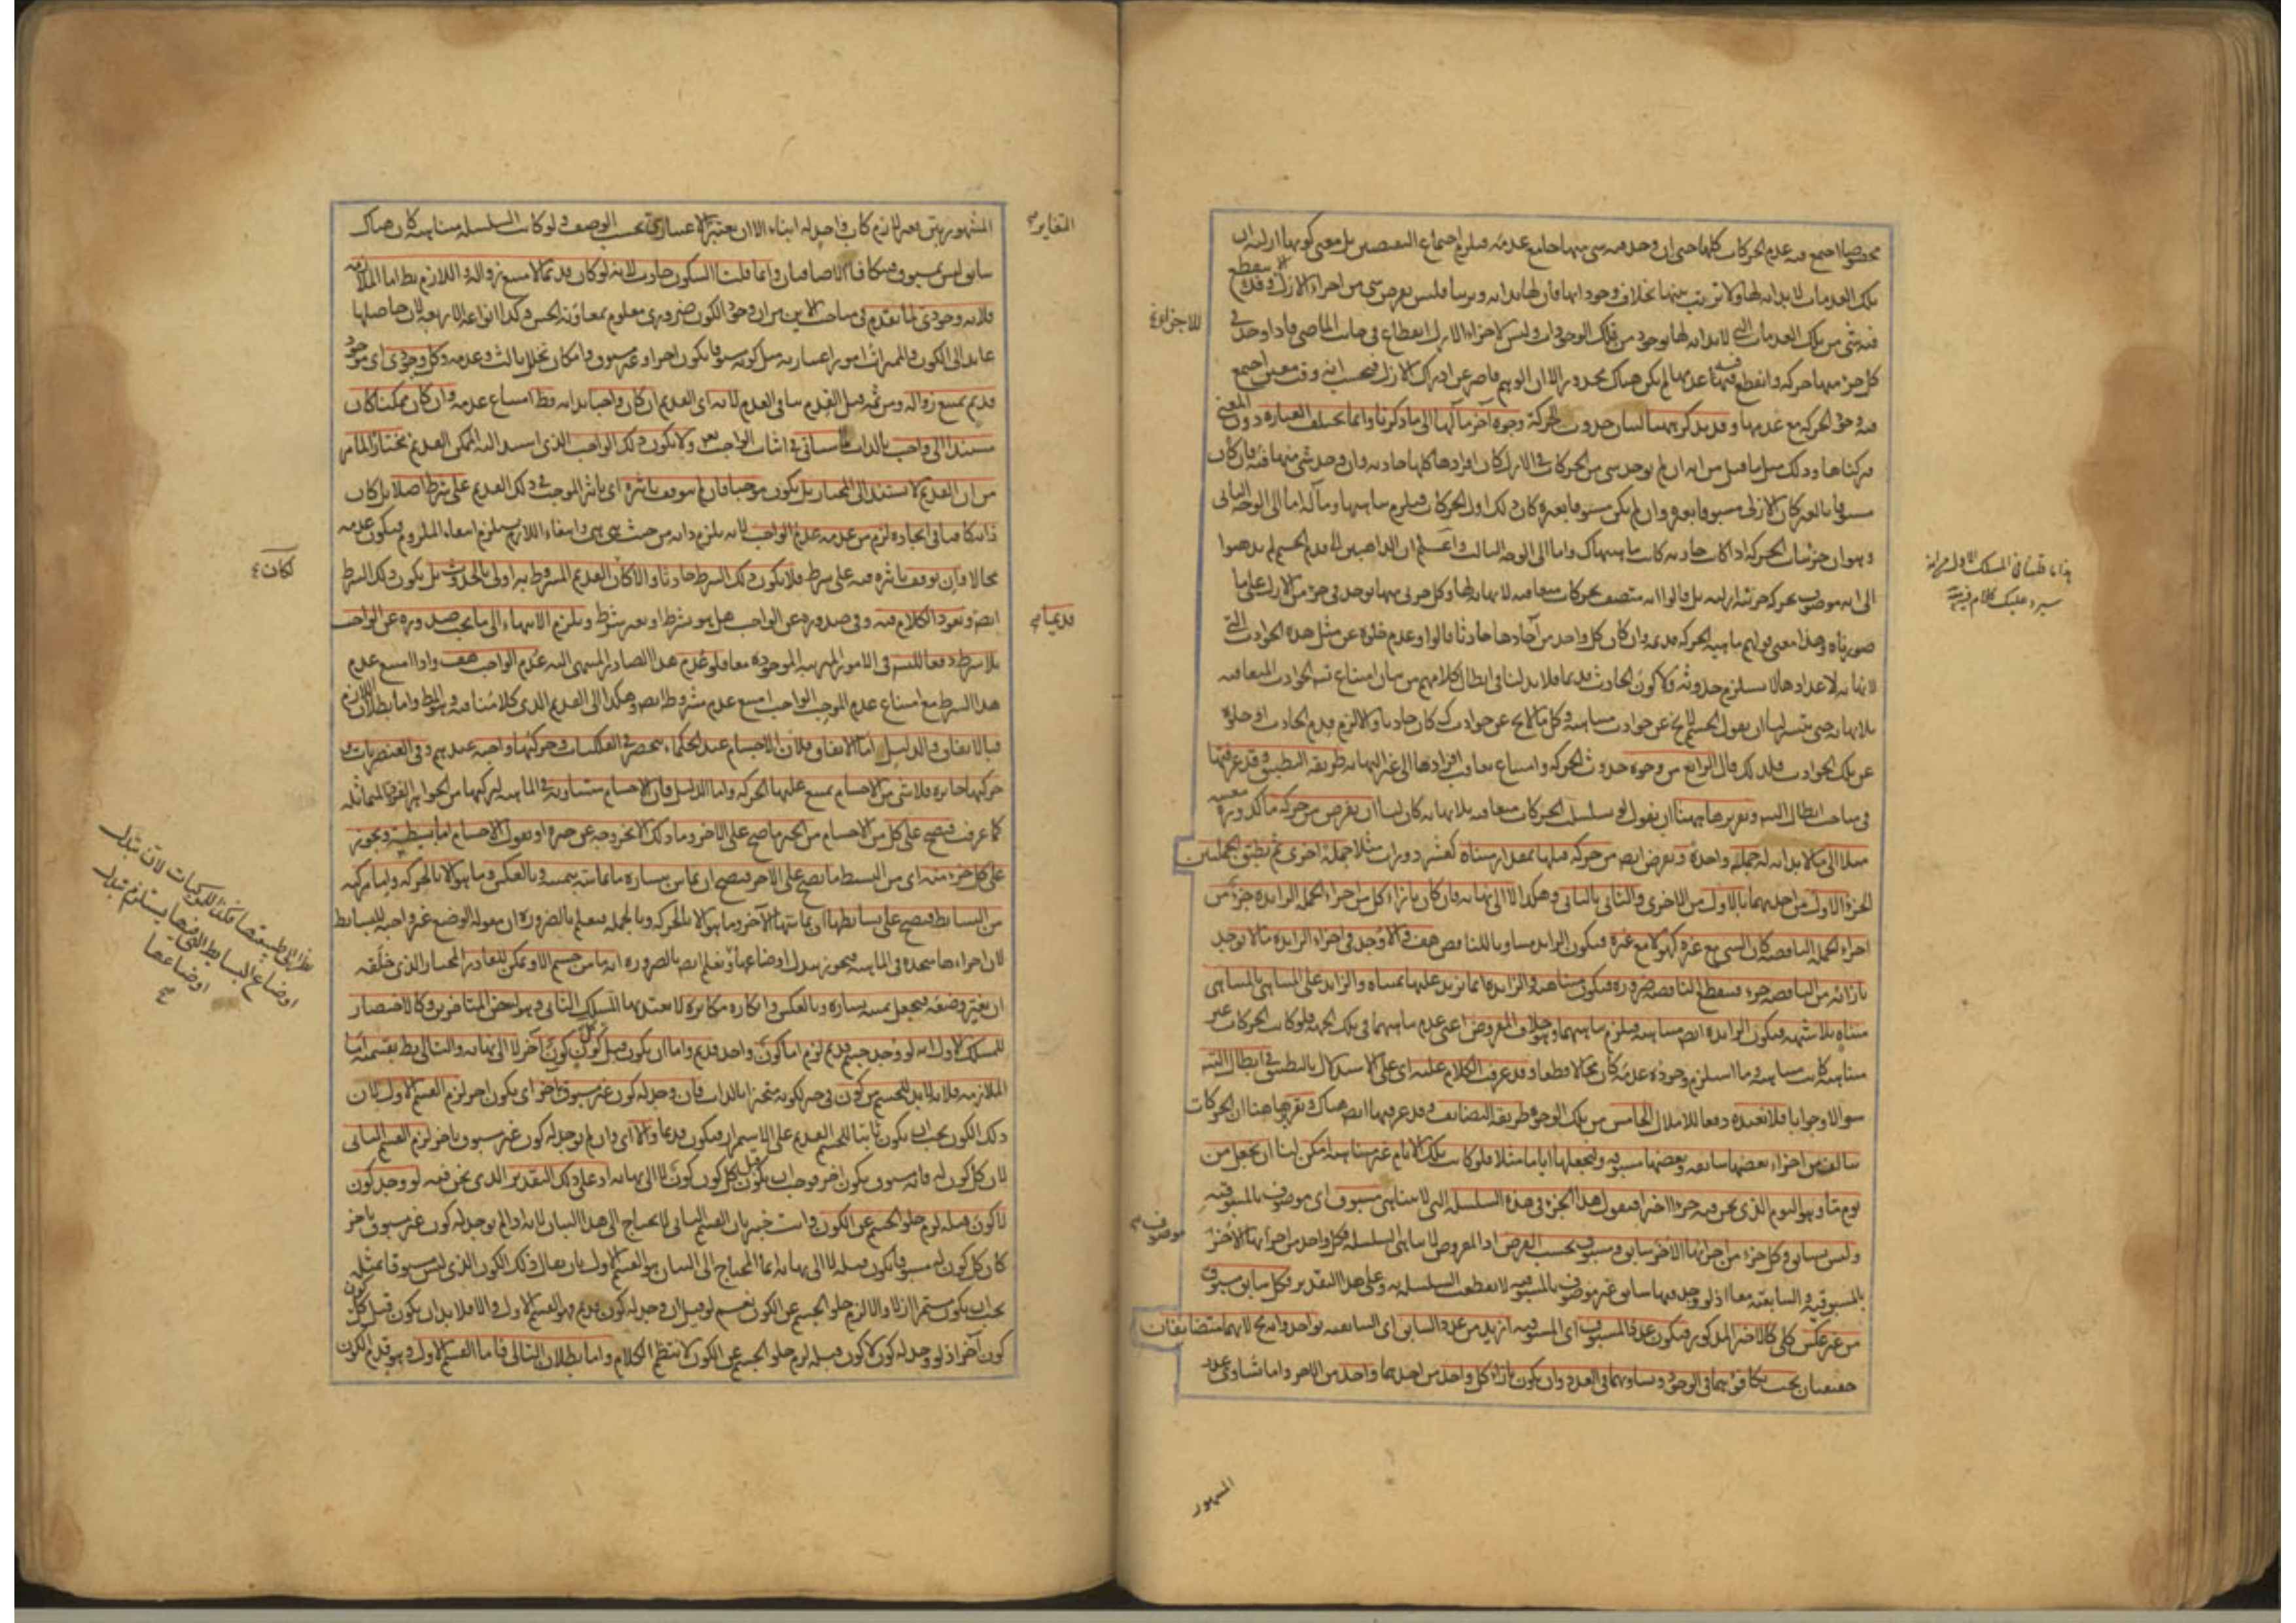 مخصوصا اجتمع فيه عدم الحركات كلها حتى ان وجد فيه شي منها جامع عدمه فيلزم اجتماع النقيضين بل معنى كونها ازلية ان
تلك العدمات لا بداية لها ولا ترتيب بينها بخلاف وجوداتها فان لها بداية وترتبا فليس يفرض شي من اجزاء الازل الا ينقطع
فيه شي من تلك العدمات التي لا بداية لها بوجود من تلك الوجودات وليس لاجزاء الازل انقطاع في جانب الماضي فاذا وجد في
كل جزء منها حركة وانقطع فيه عدمها لم يكن هناك محذور الا ان الوهم قاصر عن ادراك الازل فيحسب انه وقت معين اجتمع
فيه وجود الحركة مع عدمها وقد يذكر ههنا لبيان حدوث الحركة وجوه اخر مآلها الى ما ذكرنا وانما تختلف العبارة دون المعنى
تركناها وذلك مثل ما قيل من انه ان لم يوجد شي من الحركات في الازل كان افرادها كلها حادثة وان وجد شي منها فيه فان كان
مسبوقا بالغير كان الازلي مسبوقا بغيره وان لم يكن مسبوقا بغيره كان ذلك اول الحركات فيلزم تناهيها ومآله اما الى الوجه الثاني
وهو ان جزئيات الحركة اذا كانت حادثة كانت ماهيتها كذلك واما الى الوجه الثالث واعلم ان الذاهبين الى قدم الجسم لم يذهبوا
الى انه موصوف بحركة جزئية ازلية بل قالوا انه متصف بحركات متعاقبة لا نهاية لها وكل جزئي منها يوجد في جزء من الازل على ما
صورناه وهذا معنى قولهم ماهية الحركة قديمة وان كان كل واحد من آحادها حادثا قالوا وعدم خلوه عن مثل هذه الحوادث التي
لا نهاية لاعدادها لا يستلزم حدوثه ولا كون الحادث قديما فلا بد لنا في ابطال كلامهم من بيان امتناع تسلسل الحوادث المتعاقبة
بلا نهاية حتى يتسير لنا ان نقول الجسم لا يخ عن حوادث متناهية وكل ما لا يخ عن حوادث كك كان حادثا والا لزم قدم الحادث او خلوه
عن تلك الحوادث فلذلك قال الرابع من وجوه حدوث الحركة وامتناع تعاقب افرادها الى غير النهاية طريقة التطبيق وقد عرفتها
في مباحث ابطال التسلسل وتقريرها ههنا ان نقول لو تسلسل الحركات متعاقبة بلا نهاية كان لنا ان نفرض من حركة ما كدورة معينة
مثلا الى ما لا بداية له جملة واحدة ونفرض ايضا من حركة قبلها بمقدار متناه كعشر دورات مثلا جملة اخرى ثم نطبق الجملتين
الجزء الاول من احديهما بالاول من الاخرى والثاني بالثاني وهكذا لا الى نهاية فان كان بازاء كل من اجزاء الجملة الزائدة جزء من
اجزاء الجملة الناقصة كان الشي مع غيره كهو لا مع غيره فيكون الزايد مساويا للناقص هف والا وجد في اجزاء الزايدة ما لا يوجد
بازائه من الناقصة جزء فتنقطع الناقصة ضرورة فيكون متناهية والزائدة انما تزيد عليها بمتناه والزايد على المتناهي بالمتناهي
متناه بلا شبهة فيكون الزايدة ايضا متناهية فيلزم تناهيهما وهو خلاف المفروض اعني عدم تناهيهما في تلك الجهة فلو كانت الحركات غير
متناهية كانت متناهية وما استلزم وجوده عدمه كان محالا قطعا وقد عرفت الكلام عليه اي على الاستدلال بالتطبيق في ابطال التسلسل
سوالا وجوابا فلا نعيده دفعا للاملال الخامس من تلك الوجوه طريقة التضايف وقد عرفتها ايضا هناك وتقريرها هنا ان الحركات
تتالف من اجزاء بعضها سابقة وبعضها مسبوقة ولنجعلها اياما مثلا فلو كانت تلك الايام غير متناهية امكن لنا ان نجعل من
يوم ما وهو اليوم الذي نحن فيه جزءا اخيرا فنقول هذا الجزء في هذه السلسلة التي لا تتناهى مسبوق اي موصوف بالمسبوقية
وليس بسابق وكل جزء من اجزائها الاخر سابق ومسبوق بحسب الفرض اذ المفروض لا تناهي السلسلة فكل واحد من اجزائها الاخر موصوف
بالمسبوقية والسابقية معا اذ لو وجد فيها سابق غير موصوف بالمسبوقية لانقطعت السلسلة به وعلى هذا التقدير فكل سابق مسبوق
من غير عكس كلي كالاخير المذكور فيكون عدد المسبوق اي المسبوقية ازيد من عدد السابق اي السابقية بواحد وانه مح لانهما متضايفان
حقيقيان يجب تكافؤهما في الوجود وتساويهما في العدد وان يكون بازاء كل واحد من احديهما واحد من الاخر واما تساوي عدد
للاجزاء
موصوف
المشهور
المشهورين غير لازم كاب واحد له ابناء الا ان يعتبر الاعتباري بحسب الوصف ولو كانت السلسلة متناهية كان هناك
سابق ليس بمسبوق فتكافأ الاضافيان وانما قلنا السكون حادث لانه لو كان قديما لامتنع زواله واللازم بط اما الملازمة
فلانه وجودي لما تقدم في مباحث الاين من ان وجود الكون ضروري معلوم بمعاونة الحس وكذا انواعه الاربعة لان حاصلها
عايد الى الكون والمميزات امور اعتبارية مثل كونه مسبوقا بكون اخر او غير مسبوق وامكان تخلل ثالث وعدمه وكل وجودي اي موجود
قديم يمتنع زواله ومن ثمه قيل القدم ينافي العدم لانه اي القديم ان كان واجبا بذاته فظ امتناع عدمه وان كان ممكنا كان
مستندا الى واجب بالذات لما سياتي في اثبات الواجب ولا يكون ذلك الواجب الذي استند اليه الممكن القديم مختارا لما مر
من ان القديم لا يستند الى المختار بل يكون موجبا فان لم يتوقف تاثيره اي تاثير الموجب في ذلك القديم على شرط اصلا بل كان
ذاته كافيا في ايجاده لزم من عدمه عدم الواجب لانه يلزم ذاته من حيث هي هي وانتفاء اللازم يستلزم انتفاء الملزوم فيكون عدمه
محالا فان توقف تاثيره فيه على شرط فلا يكون ذلك الشرط حادثا والا لكان القديم المشروط به اولى بالحدوث بل يكون ذلك الشرط
ايضا ونعود الكلام فيه وفي صدوره عن الواجب هل هو بشرط او بغير شرط ويلزم الانتهاء الى ما يجب صدوره عن الواجب
بلا شرط دفعا للتسلسل في الامور المترتبة الموجودة معا فلو عدم هذا الصادر المنتهى اليه عدم الواجب هف واذا امتنع عدم
هذا الشرط مع امتناع عدم الموجب الواجب امتنع عدم مشروطه ايضا وهكذا الى القديم الذي كلامنا فيه وهو المط واما بطلان اللازم
فبالاتفاق والدليل اما الاتفاق فلان الاجسام عند الحكماء منحصر في الفلكيات وحركتها واجبة عندهم وفي العنصريات و
حركتها جايزة فلا شي من الاجسام يمتنع عليها الحركة واما الدليل فان الاجسام متساوية في الماهية لتركبها من الجواهر الفردة المتماثلة
كما عرفت فيصح على كل من الاجسام من الحيز ما صح على الاخر وما ذلك الا بخروجه عن حيزه او نقول الاجسام اما بسيطة ويجوز
على كل جزء منه اي من البسيط ما يصح على الاخر فيصح ان يماس بيساره ما يماسه بيمينه وبالعكس وما هو الا بالحركة واما مركبة
من البسايط فيصح على بسايطها ان يماسها الآخر وما هو الا بالحركة وبالجملة فيعلم بالضرورة ان مقولة الوضع غير واجبة للبسايط
لان اجزاءها متحدة في الماهية فيجوز تبدل اوضاعها ونعلم ايضا بالضرورة انه ما من جسم الا ويمكن للقادر المختار الذي خلقه
ان يغير وضعه فيجعل يمينه يساره وبالعكس وانكاره مكابرة لا يعتد بها المسلك الثاني وهو لبعض المتاخرين وكالاختصار
للمسلك الاول انه لو وجد جسم قديم لزم اما كون واحد قديم واما ان يكون قبل كل كون كون آخر لا الى نهاية والتالي بط بقسميه اما
الملازمة فلانه لا بد للجسم من كون في حيز لكونه متحيزا بالذات فان وجد له كون غير مسبوق بآخر اي بكون اخر لزم القسم الاول لان
ذلك الكون يجب ان يكون ثابتا للجسم القديم على الاستمرار فيكون قديما والا اي وان لم يوجد له كون غير مسبوق باخر لزم القسم الثاني
لان كل كون له فانه مسبوق بكون اخر فوجب ان يكون قبل كل كون كون لا الى نهاية اذ على ذلك التقدير الذي نحن فيه لو وجد كون
لا كون قبله لزم خلو الجسم عن الكون وانت خبير بان القسم الثاني لا يحتاج الى هذا البيان لانه اذا لم يوجد له كون غير مسبوق باخر
كان كل كون له مسبوقا بكون قبله لا الى نهاية انما المحتاج الى البيان هو القسم الاول بان يقال ذلك الكون الذي ليس مسبوقا بمثله
يجب ان يكون مستمرا ازلا والا لزم خلو الجسم عن الكون نعم لو قيل ان وجد له كون قديم فهو القسم الاول والا فلا بد ان يكون قبل كل كون
كون آخر اذ لو وجد له كون لا كون قبله لزم خلو الجسم عن الكون لانتظم الكلام واما بطلان التالي فاما القسم الاول وهو قدم الكون
التغاير
قديما
لكان